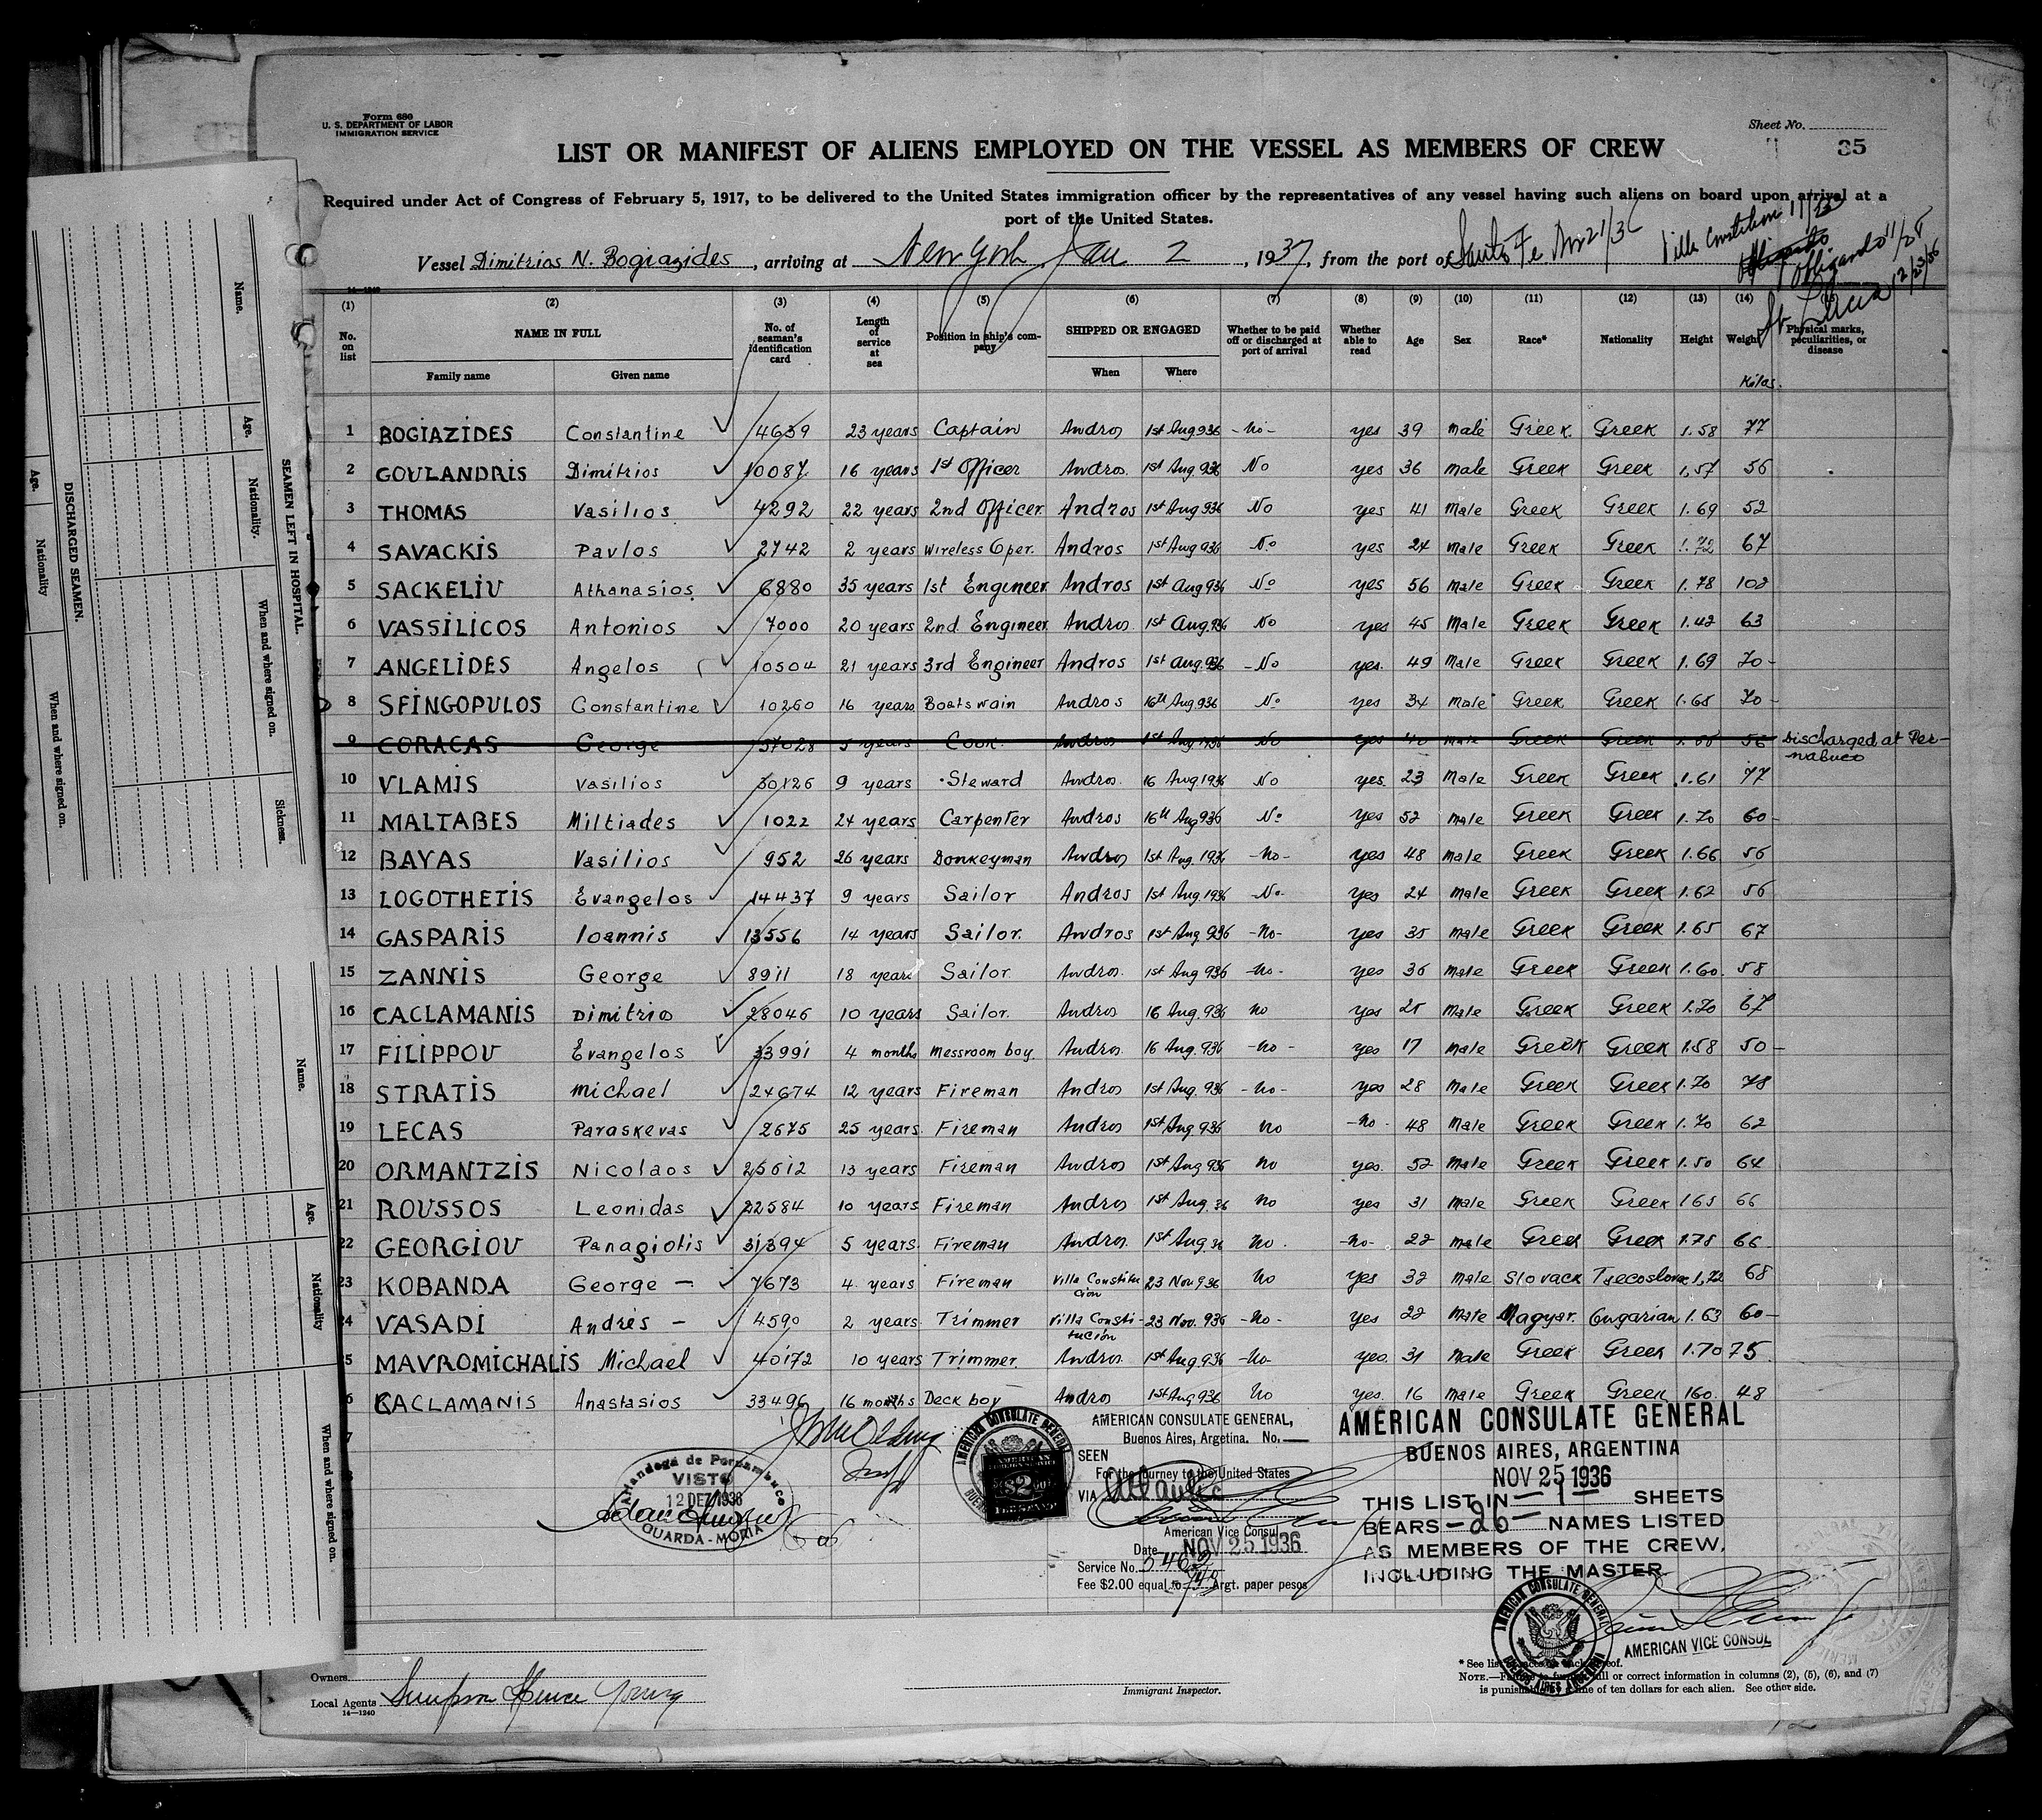 Form 680
U. S. DEPARTMENT OF LABOR
IMMIGRATION SERVICE
Sheet No.
35
LIST OR MANIFEST OF ALIENS EMPLOYED ON THE VESSEL AS MEMBERS OF CREW
Required under Act of Congress of February 5, 1917, to be delivered to the United States immigration officer by the representatives of any vessel having such aliens on board upon arrival at a
port of the United States.
Villa Constitucion 11/23
Vessel Dimitrios N. Bogiazides, arriving at New York Jan 2, 1937, from the port of Santa Fe Nov 21/36
Obligado 11/25
St. Lucia 12/23/36
14-1240
(1) (2) (3) (4) (5) (6) (7) (8) (9) (10) (11) (12) (13) (14)
No. on list NAME IN FULL No. of seaman's identification card Length of service at sea Position in ship's company SHIPPED OR ENGAGED Whether to be paid off or discharged at port of arrival Whether able to read Age Sex Race* Nationality Height Weight Physical marks, peculiarities, or disease
Family name Given name When Where
Kilos.
1 BOGIAZIDES Constantine 4639 23 years Captain Andros 1st Aug 936 -No- yes 39 Male Greek Greek 1.58 77
2 GOULANDRIS Dimitrios 10087 16 years 1st Officer Andros. 1st Aug. 936 No yes 36 male Greek Greek 1,57 56
3 THOMAS Vasilios 4292 22 years 2nd Officer. Andros 1st Aug 936 No yes 41 Male Greek Greek 1.69 52
4 SAVACKIS Pavlos 2742 2 years Wireless Oper. Andros 1st Aug 936 No yes 24 male Greek Greek 1.72 67
5 SACKELIU Athanasios 6880 35 years 1st Engineer Andros 1st Aug 936 No yes 56 Male Greek Greek 1.78 102
6 VASSILICOS Antonios 7000 20 years 2nd. Engineer Andros. 1st Aug. 936 No yes 45 Male Greek Greek 1.42 63
7 ANGELIDES Angelos 10504 21 years 3rd Engineer Andros 1st Aug. 936 -No yes. 49 Male Greek Greek 1.69 70-
8 SFINGOPULOS Constantine 10260 16 years Boatswain Andros 16th Aug 936 No yes 34 Male Greek Greek 1.65 70-
9 CORACAS George 37028 5 years Cook Andros 1st Aug 1936 No yes 40 male Greek Greek 56 Discharged at Per-
nabuco
10 VLAMIS Vasilios 30126 9 years Steward Andros. 16 Aug 1936 No yes. 23 Male Greek Greek 1.61 77
11 MALTABES Miltiades 1022 24 years Carpenter Andros 16th Aug 936 No yes 52 male Greek Greek 1.70 60-
12 BAYAS Vasilios 952 26 years Donkeyman Andros 1st Aug. 1936 -No- yes 48 Male Greek Greek 1.66 56
13 LOGOTHETIS Evangelos 14437 9 years Sailor Andros 1st Aug. 1936 -No- yes 24 Male Greek Greek 1.62 56
14 GASPARIS Ioannis 13556 14 years Sailor. Andros 1st Aug. 936 -No- yes 35 male Greek Greek 1.65 67
15 ZANNIS George 8911 18 years Sailor Andros. 1st Aug 936 -No- yes 36 Male Greek Greek 1.60. 58
16 CACLAMANIS Dimitrio 28046 10 years Sailor. Andros 16 Aug. 936 No yes 25 Male Greek Greek 1.70 67
17 FILIPPOU Evangelos 33991 4 months Messroom boy. Andros. 16 Aug. 936 -No- yes 17 Male Greek Greek 1.58 50-
18 STRATIS Michael 24674 12 years Fireman Andros 1st Aug. 936 -No- yes 28 Male Greek Greek 1.70 78
19 LECAS Paraskevas 2675 25 years. Fireman Andros 1st Aug 936 No -No- 48 Male Greek Greek 1.70 62
20 ORMANTZIS Nicolaos 25612 13 years Fireman Andros 1st Aug 936 No yes. 52 Male Greek Greek 1.50 64
21 ROUSSOS Leonidas 22584 10 years Fireman Andros 1st Aug. 36 No yes 31 Male Greek Greek 1.65 66
22 GEORGIOU Panagiotis 31394 5 years. Fireman Andros. 1st Aug 36 No. -No- 22 male Greek Greek 1.78 66
23 KOBANDA George - 7673 4. years Fireman Villa Constitu 23 Nov 936 No yes 32 Male Slovack Tsecoslovac 1,72 68
cion
24 VASADI Andrés - 4590 2 years Trimmer Villa Consti- 23 Nov. 936 -No- yes 22 Male Magyar. Ungarian 1.63 60-
tución
5 MAVROMICHALIS Michael 40172 10 years Trimmer. Andros. 1st Aug. 936 -No- yes. 31 Male Greek Greek 1.70 75
6 CACLAMANIS Anastasios 33496 16 months Deck boy Andros 1st Aug 936 No yes. 16 Male Greek Greek 160. 48
Alfandega de Pernambuco
VISTO
12 DEZ 1936
GUARDA-MORIA
AMERICAN CONSULATE GENERAL
BUENOS AIRES
AMERICAN
FOREIGN SERVICE
$2
AMERICAN CONSULATE GENERAL,
Buenos Aires, Argetina. No.
SEEN
For the journey to the United States
VIA Atlantic
American Vice Consul
Date NOV 25 1936
Service No. 5462
Fee $2.00 equal to Argt. paper pesos
AMERICAN CONSULATE GENERAL
BUENOS AIRES, ARGENTINA
NOV 25 1936
THIS LIST IN -1- SHEETS
BEARS -26- NAMES LISTED
AS MEMBERS OF THE CREW,
INCLUDING THE MASTER
AMERICAN CONSULATE GENERAL
BUENOS AIRES ARGENTINA
AMERICAN VICE CONSUL
Owners
Local Agents Simpson Spence Young
14-1240
Immigrant Inspector.
* See list of races on back hereof.
NOTE.—Failure to furnish full or correct information in columns (2), (5), (6), and (7)
is punishable by a fine of ten dollars for each alien. See other side.
SEAMEN LEFT IN HOSPITAL.
Name. Age. Nationality. When and where signed on. Sickness.
DISCHARGED SEAMEN.
Age. Nationality When and where signed on.
Name. Age. Nationality When and where signed on.